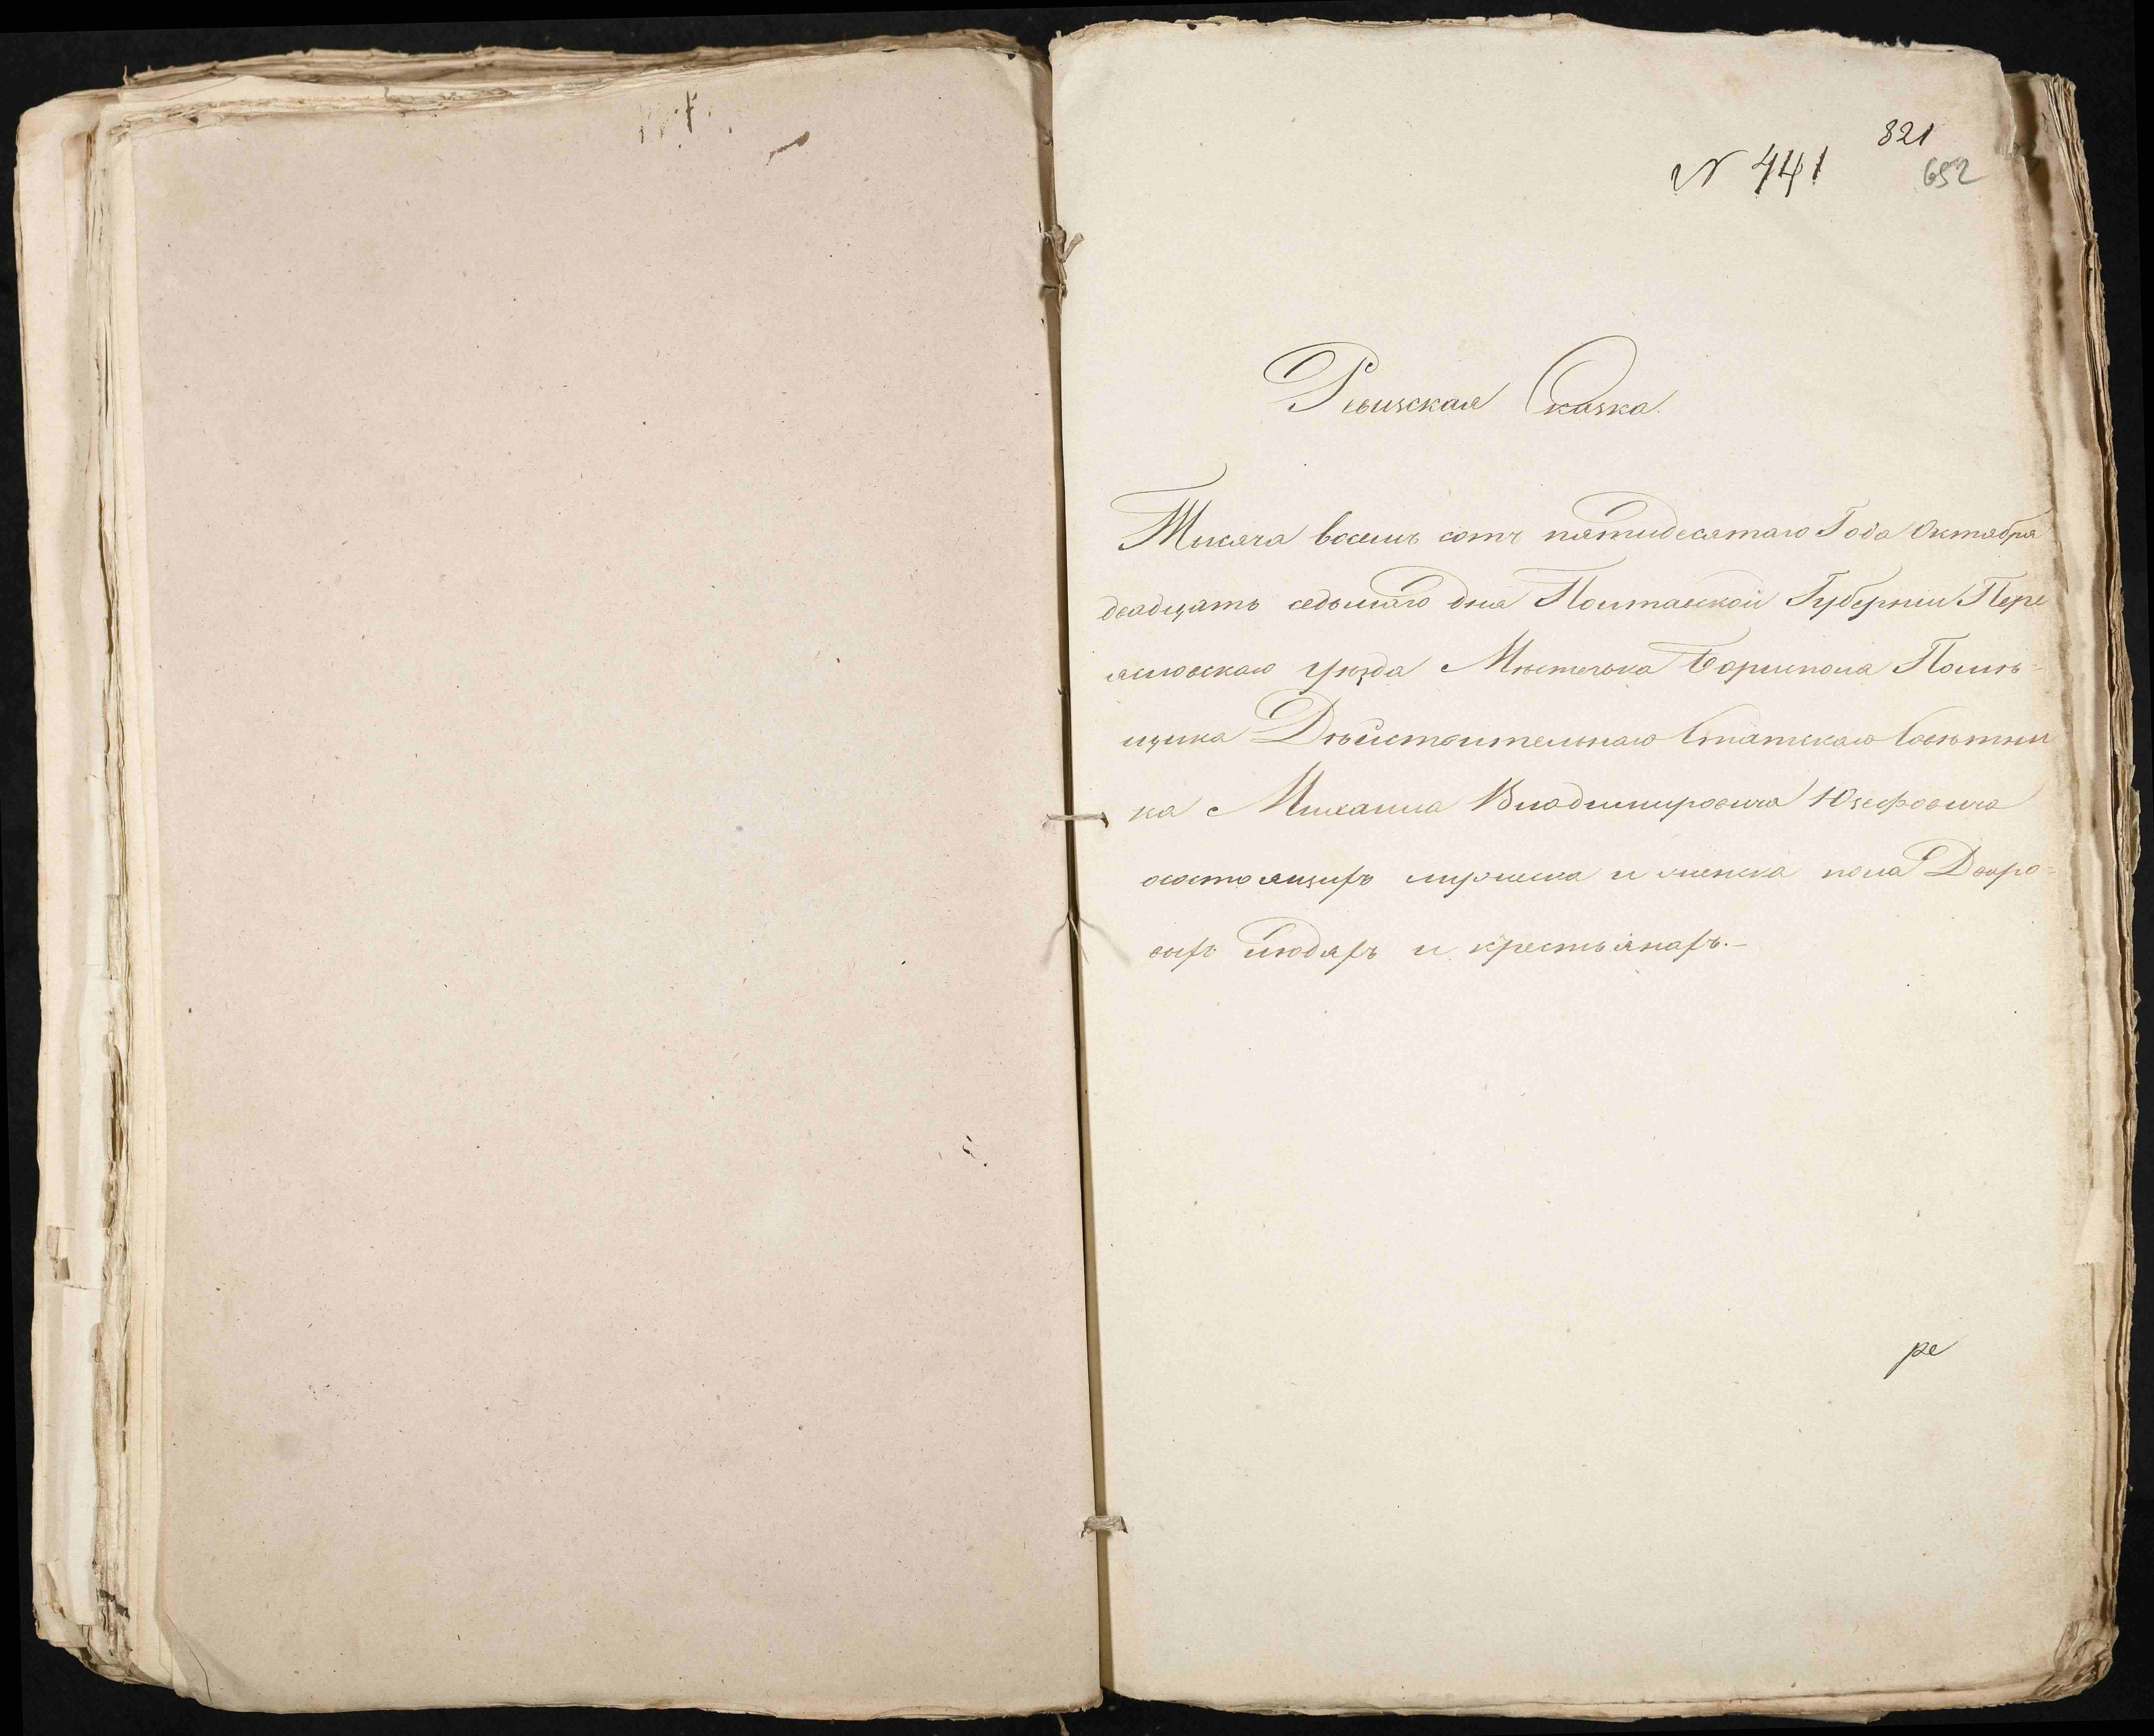 821
N 441 652
Ревизская Сказка.
Тысяча восемь сотъ пятидесятаго Года Октября
двадцать седьмаго дня Полтавской Губерніи Пере
яславскаго уѣзда Мѣстечька Борисполя Помѣ=
щика Дѣйствительнаго Статскаго Совѣтни
ка Михаила Владимировича Юзефовича
о состоящихъ мужеска и женска пола Дворо=
выхъ людяхъ и крестьянахъ.-
ре